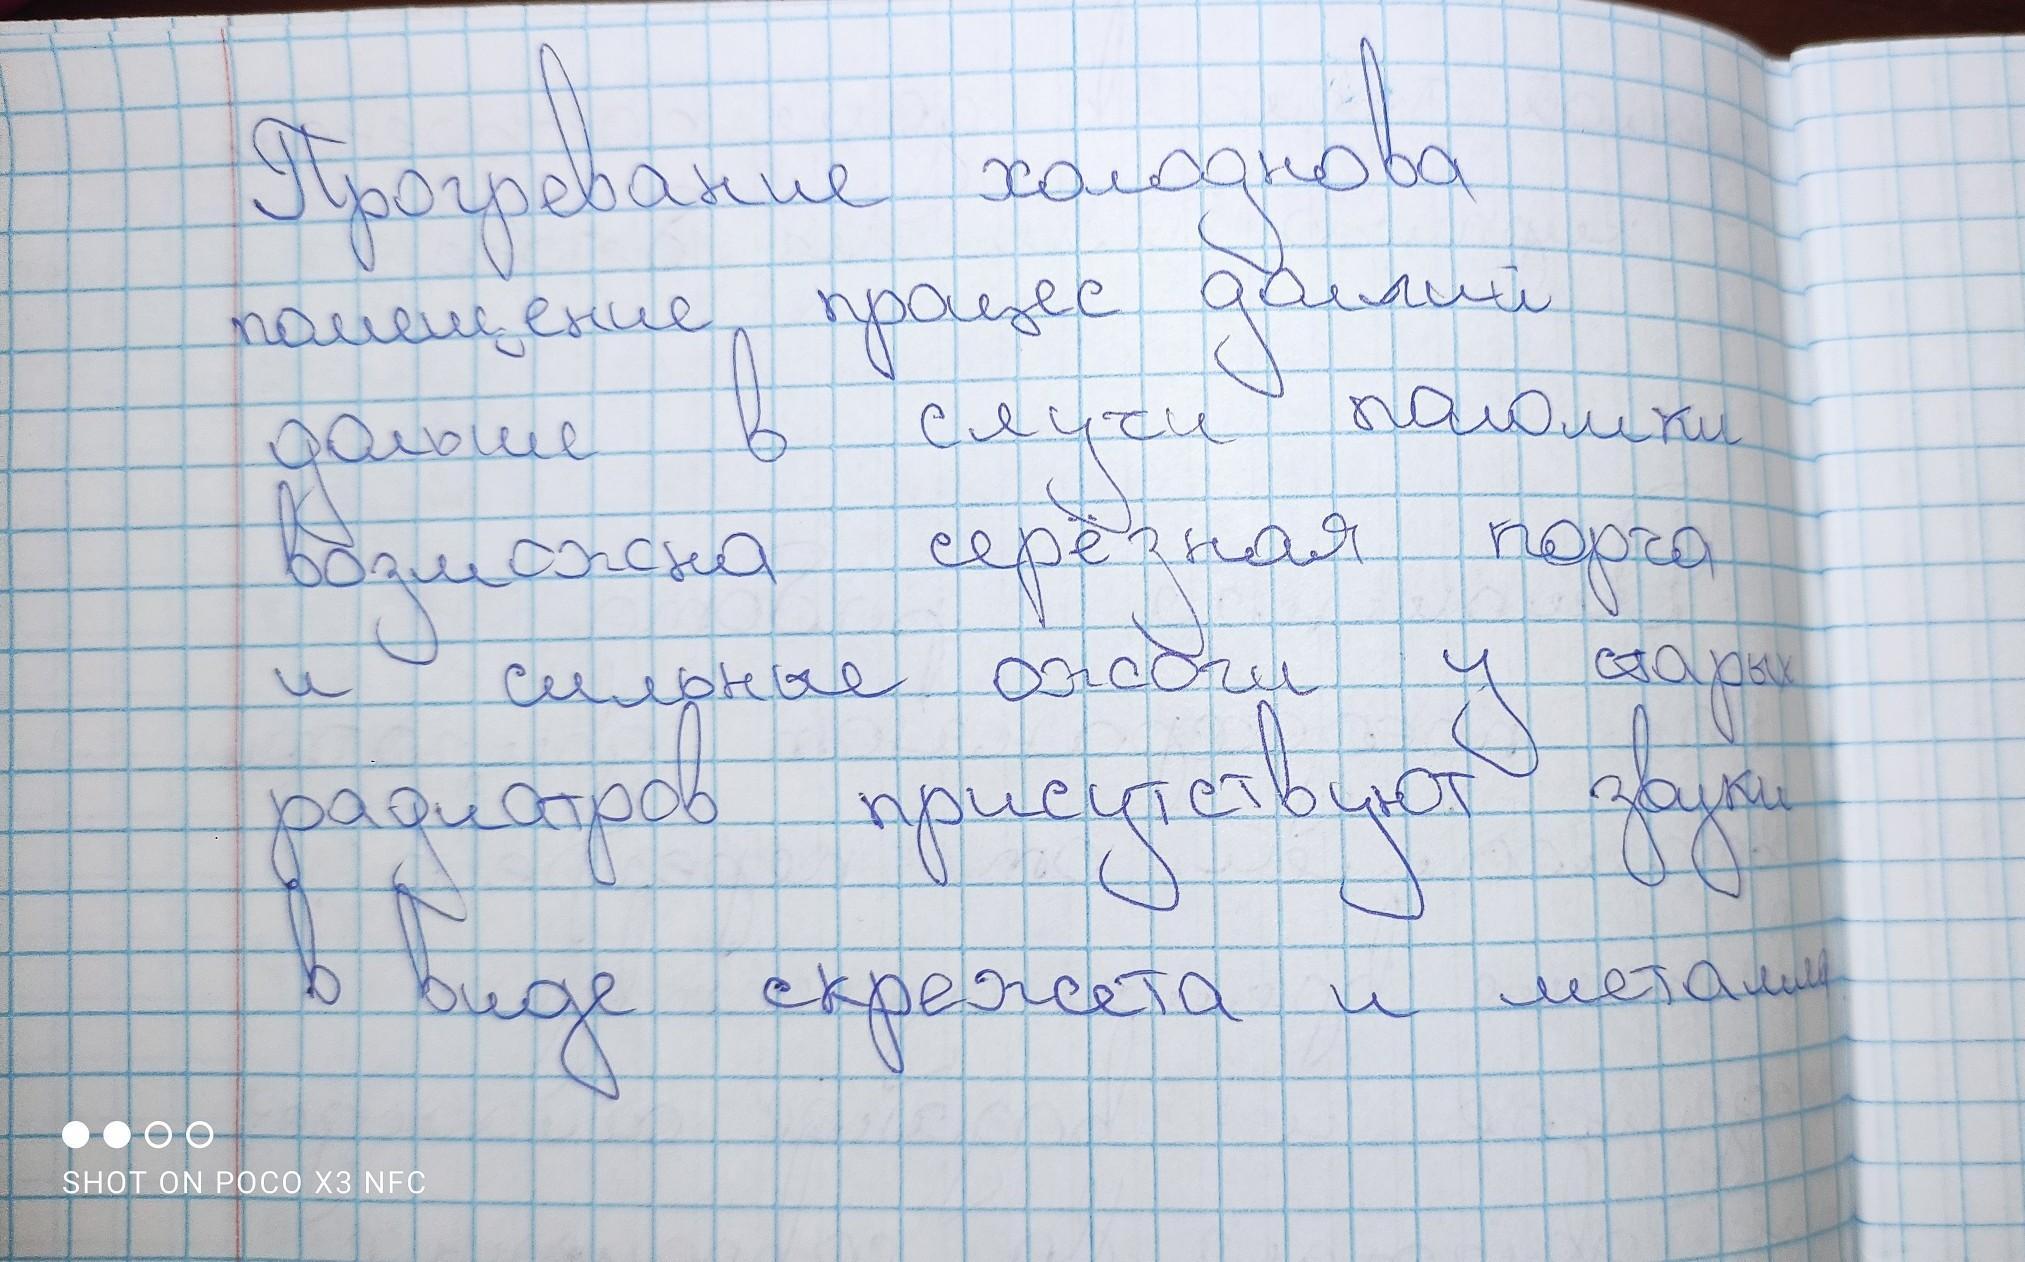 Прогревание холоднова
помещение процес далгий
дальше в случи паломки
возможна серёзная порча
и сильные ожоги у старых
радиатров присутствуют звуки
в виде скрежета и металла
SHOT ON POCO X3 NFC